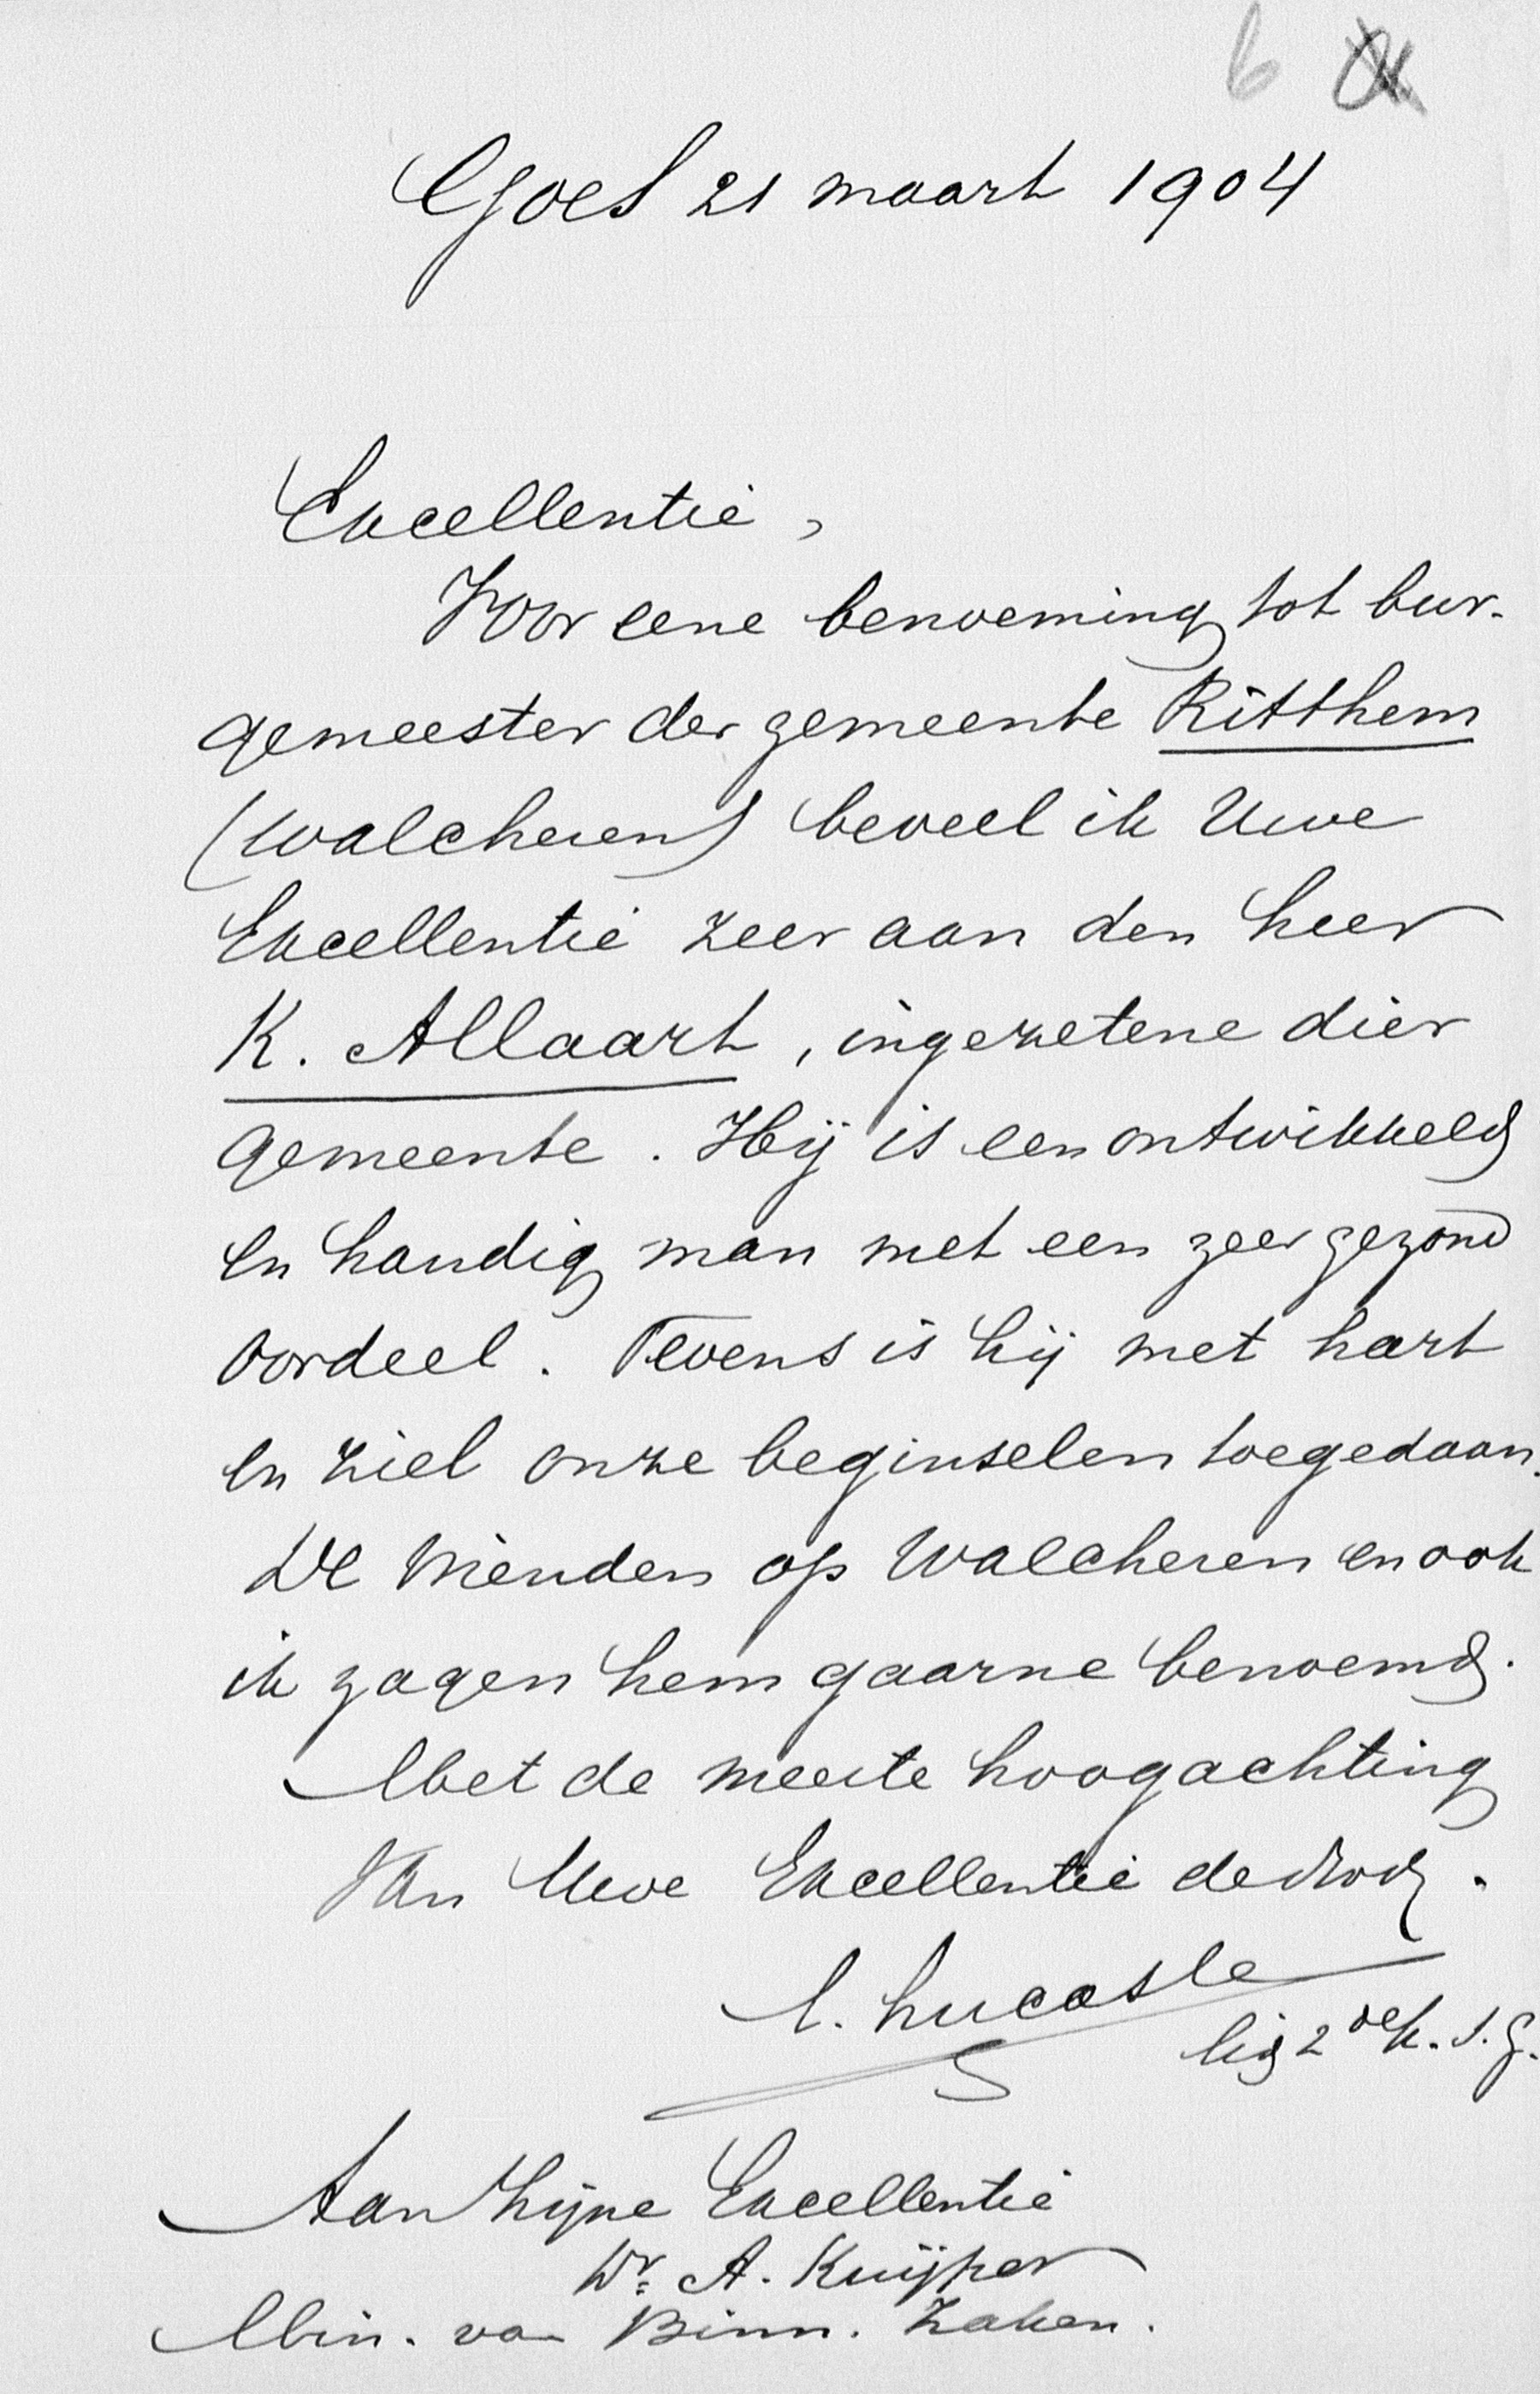 6
Goes 21 maart 1904
Excellentie,
Voor eene benoeming tot bur-
gemeester der gemeente Ritthem
(Walcheren) beveel ik Uwe
Excellentie zeer aan den heer
K. Allaart, ingezetene dier
gemeente. Hij is een ontwikkeld
en handig man met een zeer gezond
oordeel. Tevens is hij met hart
en ziel onze beginselen toegedaan.
De vrienden op Walcheren en ook
ik zagen hem gaarne benoemd.
Met de meeste hoogachting
Van Uwe Excellentie de
Lucasse
lid 2de k. S.G.
Aan Zijne Excellentie
Dr. A. Kuijper
Min. van Binn. Zaken.